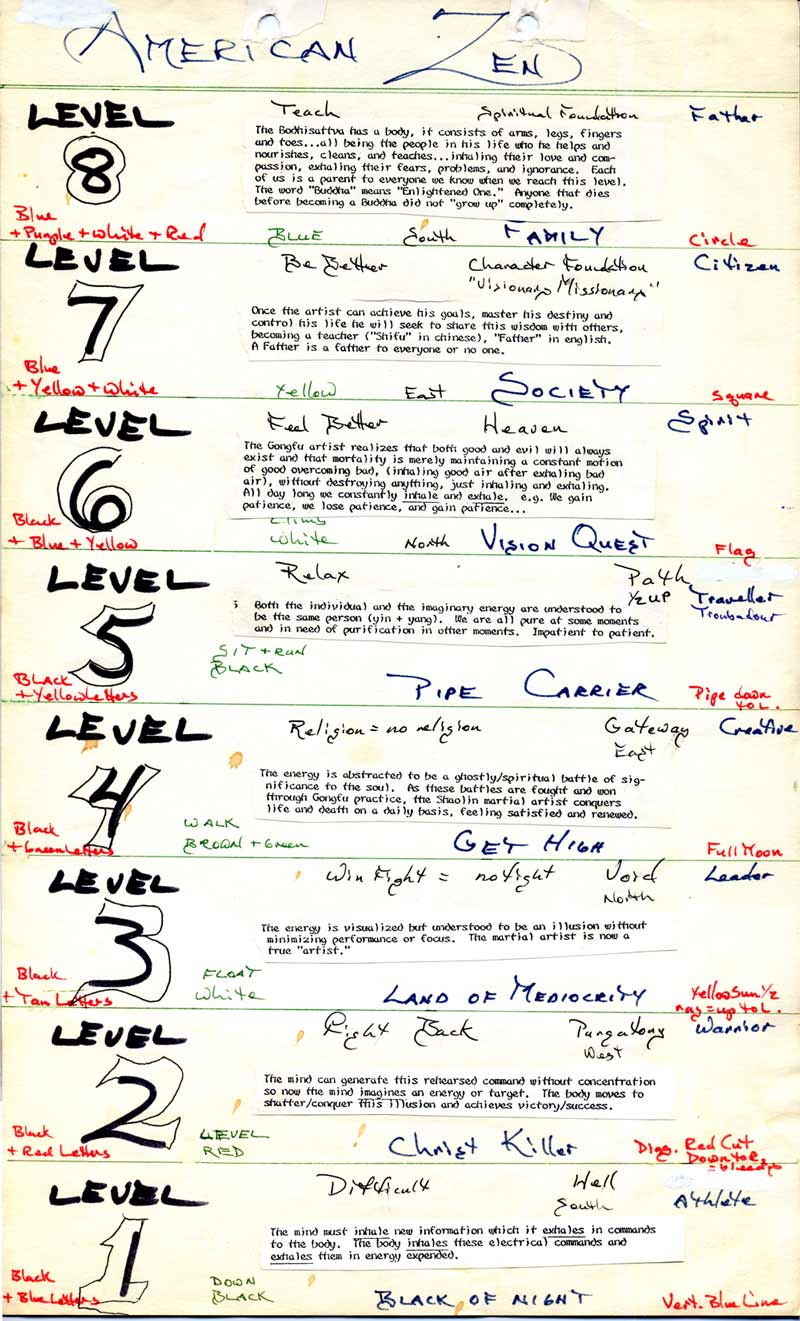 AMERICAN ZEN
LEVEL 8
Teach Spiritual Foundation Father
The Bodhisattva has a body, it consists of arms, legs, fingers
and toes...all being the people in his life who he helps and
nourishes, cleans, and teaches...inhaling their love and com-
passion, exhaling their fears, problems, and ignorance. Each
of us is a parent to everyone we know when we reach this level.
The word "Buddha" means "Enlightened One." Anyone that dies
before becoming a Buddha did not "grow up" completely.
Blue
+ Purple + White + Red
BLUE South FAMILY Circle
LEVEL 7
Be Better Character Foundation Citizen
"Visionary Missionary"
Once the artist can achieve his goals, master his destiny and
control his life he will seek to share this wisdom with others,
becoming a teacher ("Shifu" in chinese), "Father" in english.
A Father is a father to everyone or no one.
Blue
+ Yellow + White
Yellow East SOCIETY Square
LEVEL 6
Feel Better Heaven Spirit
The Gongfu artist realizes that both good and evil will always
exist and that mortality is merely maintaining a constant motion
of good overcoming bad, (inhaling good air after exhaling bad
air), without destroying anything, just inhaling and exhaling.
All day long we constantly inhale and exhale. e.g. We gain
patience, we lose patience, and gain patience...
Black
+ Blue + Yellow
White North VISION QUEST Flag
LEVEL 5
Relax Path
1/2 UP
Traveller
Troubadour
5 Both the individual and the imaginary energy are understood to
be the same person (yin + yang). We are all pure at some moments
and in need of purification in other moments. Impatient to patient.
SIT + RUN
BLACK
BLACK
+ Yellow Letters
PIPE CARRIER
Pipe down
to L.
LEVEL 4
Religion = no religion Gateway Creative
East
The energy is abstracted to be a ghostly/spiritual battle of sig-
nificance to the soul. As these battles are fought and won
through Gongfu practice, the Shaolin martial artist conquers
life and death on a daily basis, feeling satisfied and renewed.
Black
+ Green Letters
WALK
BROWN + Green
GET HIGH Full Moon
LEVEL 3
Win Fight = no fight Void Leader
North
The energy is visualized but understood to be an illusion without
minimizing performance or focus. The martial artist is now a
true "artist."
Black
+ Tan Letters
FLOAT
White
LAND OF MEDIOCRITY
Yellow Sun 1/2
ray = up to L.
LEVEL 2
Fight Back Purgatory Warrior
West
The mind can generate this rehearsed command without concentration
so now the mind imagines an energy or target. The body moves to
shatter/conquer this illusion and achieves victory/success.
Black
+ Red Letters
LEVEL
RED
Christ Killer
Diag. Red Cut
Down to R.
LEVEL 1
Difficult Hell Athlete
South
The mind must inhale new information which it exhales in commands
to the body. The body inhales these electrical commands and
exhales them in energy expended.
Black
+ Blue Letters
DOWN
BLACK
BLACK OF NIGHT Vert. Blue Line